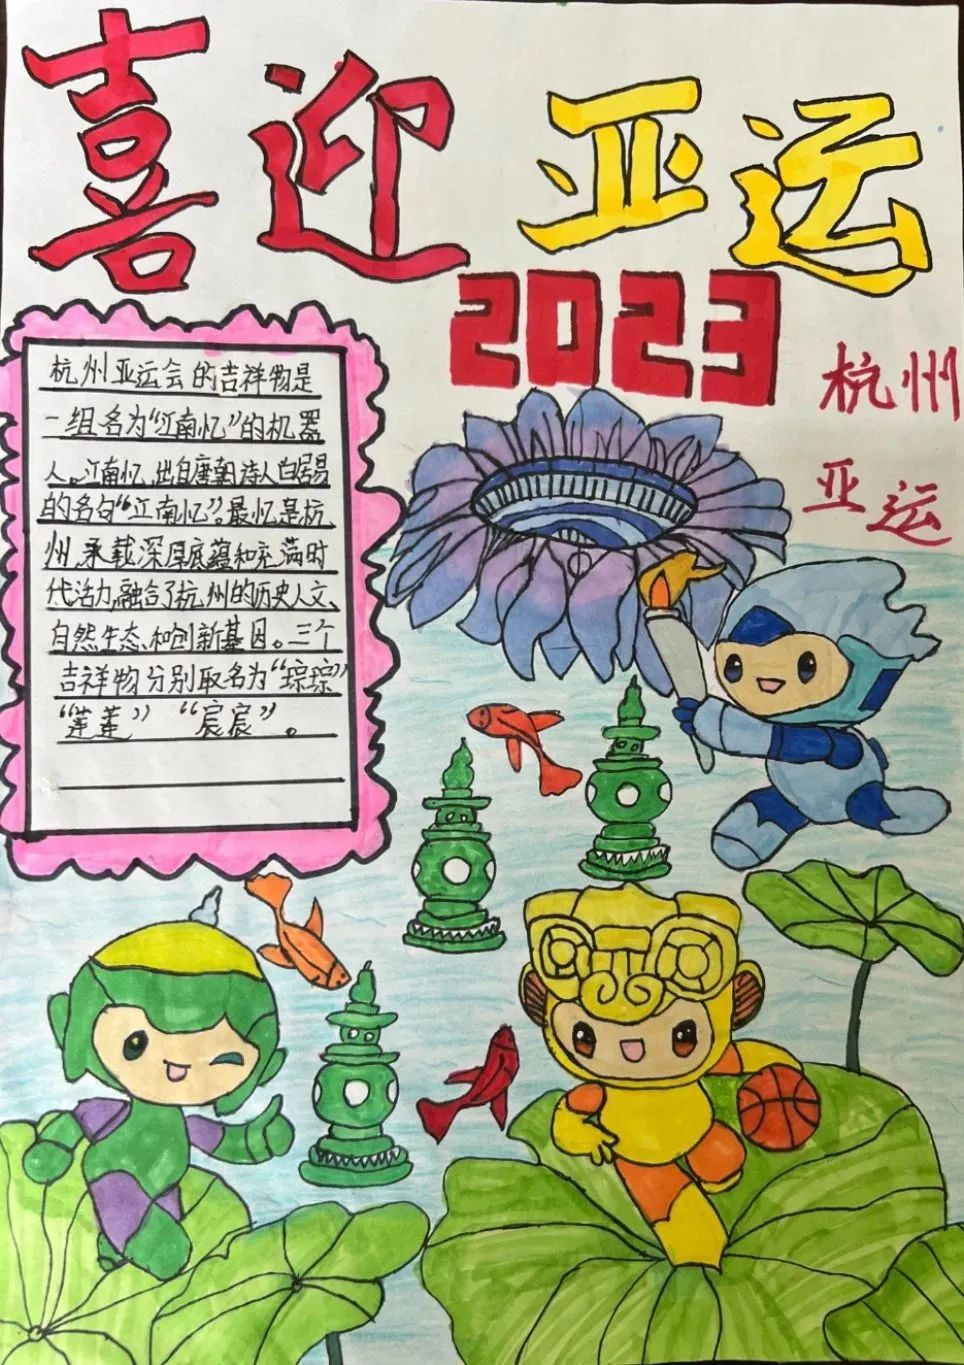 喜迎亚运
2023
杭州
亚运
杭州亚运会的吉祥物是
一组名为“江南忆”的机器
人。江南忆，出自唐朝诗人白居易
的名句“江南忆”。最忆是杭
州，承载深厚底蕴和充满时
代活力，融合了杭州的历史人文、
自然生态和创新基因。三个
吉祥物分别取名为“琮琮”
“莲莲” “宸宸”。